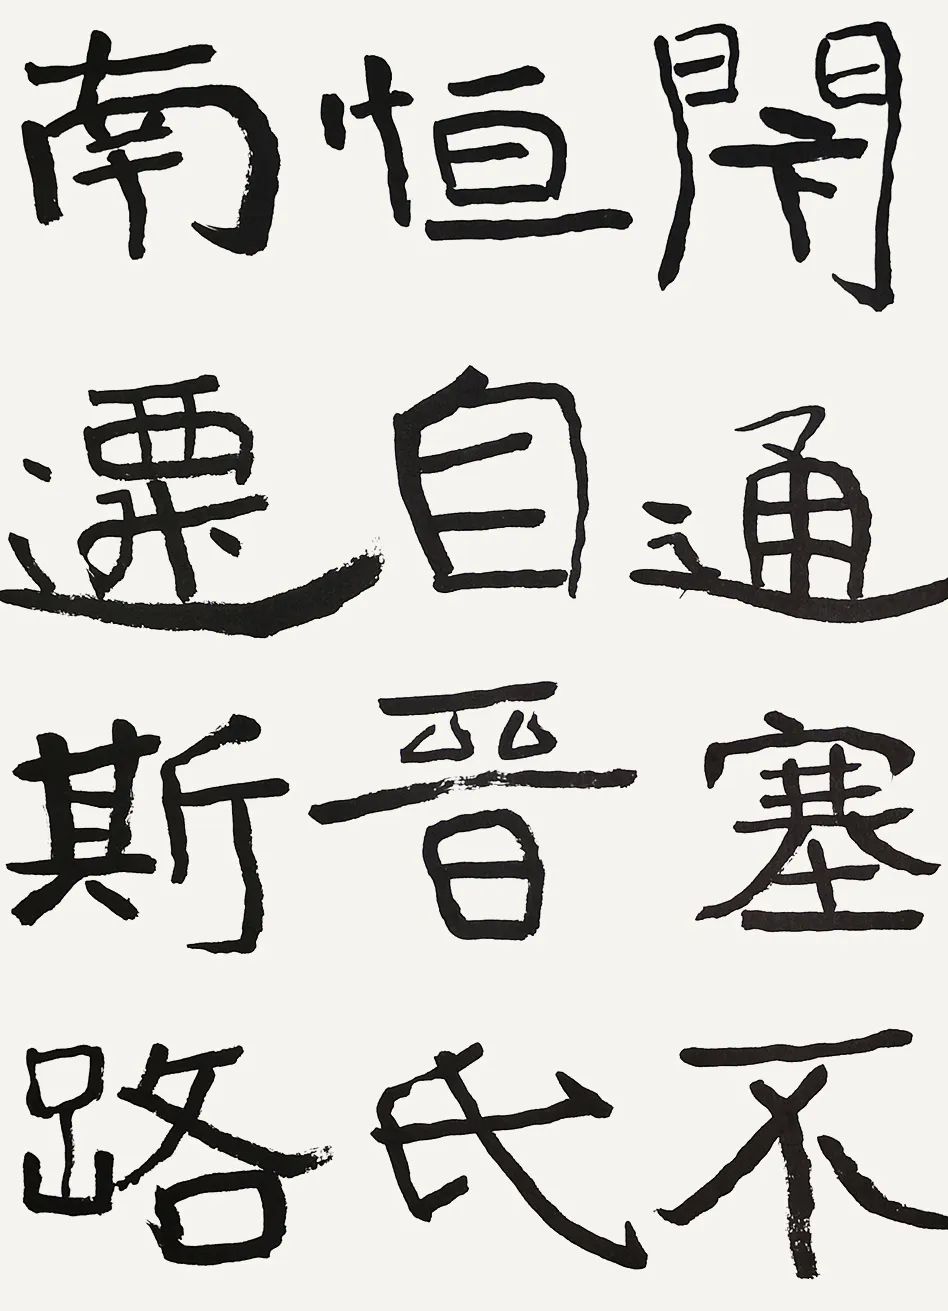 閉通塞不
恒自晉氏
南遷斯路